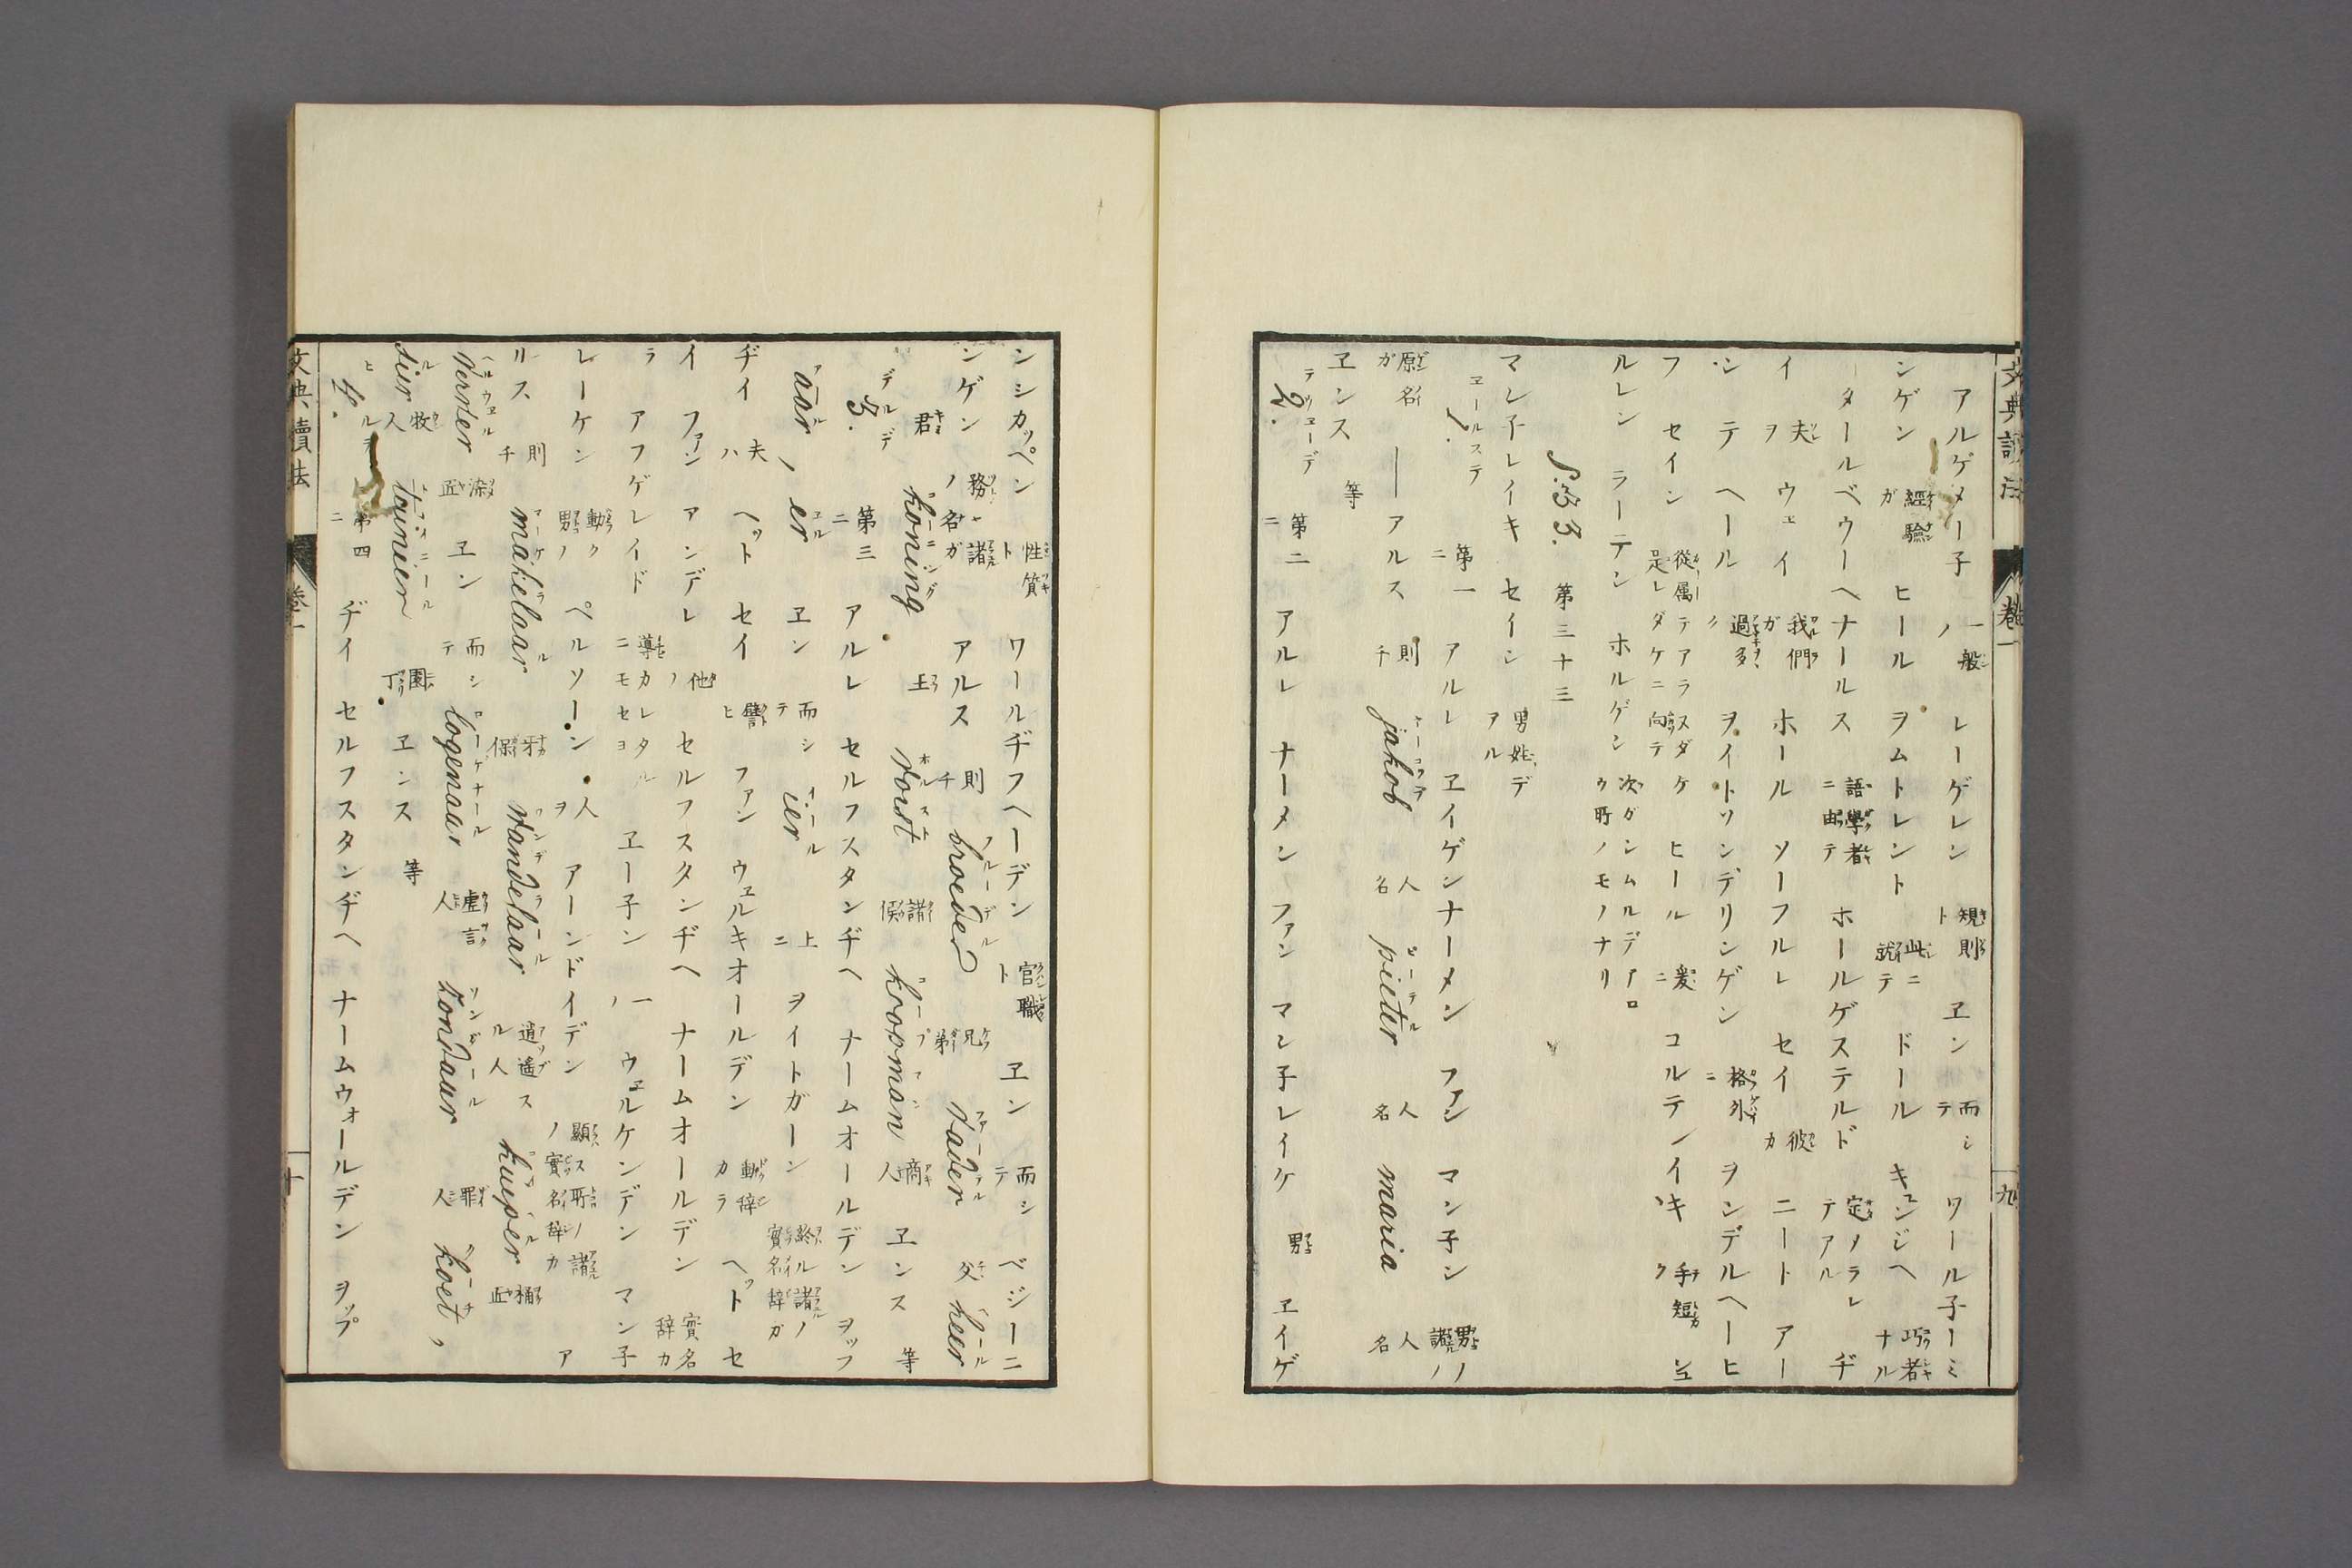 文典讀法 卷一 九
アルゲメー子 一般ノ レーゲレン 規則ト ヱン 而シテ ワール子ーミ
ンゲン 經驗ガ ヒール ヲムトレント 此ニ就テ ドール キュンジヘ 巧者ナル
タールベウーヘナールス 語學者ニ由テ ホールゲステルド 定メラレテアル ヂ
イ 夫ヲ ウェイ 我們ガ ホール ソーフルレ セイ 彼カ ニート アー
ン テ ヘール 過多ク ヲイトソンデリンゲン 格外ニ ヲンデルヘーヒ
フ セイン 從属テアラス足レダケニ向テ ダケ ヒール 爰ニ コルテイキ 手短ク
ルレン ラーテン ホルゲン 次ガンムルデアロウ所ノモノナリ
§.33. 第三十三
マン子レイキ セイン 男姓デアル
1. ヱールステ 第一ニ アルレ ヱイゲンナーメン ファン マン子ン 男ノ諸ノ
原名ガ — アルス 則チ jakob 人名 pieter 人名 maria 人名
ヱンス 等
2. テウェーデ 第二ニ アルレ ナーメン ファン マン子レイケ 男 ヱイゲ
ンシカッペン 性質ト ワールヂフヘーデン 官職ト ヱン 而シテ ベジーニ
ンゲン 務ノ諸名ガ アルス 則チ broeder 兄弟 vader 父 heer
君 koning 王 vorst 諸侯 koopman 商人 ヱンス 等
3. デルデ 第三ニ アルレ セルフスタンヂヘ ナームオールデン ヲッフ
aar, er ヱン 而シテ ier 上ニ ヲイトガーン 終ル諸ノ實名辞ガ
ヂイ 夫ハ ヘット セイ 譬ヒ ファン ウェルキオールデン 動辞カラ ヘット セ
イ ファン アンデレ 他ノ セルフスタンヂヘ ナームオールデン 實名辞カ
ラ アフゲレイド 導カレタルニモセヨ ヱー子ン 一ノ ウェルケンデン マン子
レーケン 動ク男ノ ペルソーン 人ヲ アーンドイデン 顯ス所ノ諸ノ實名辞カ ア
ルス 則チ makelaar 牙保 wandelaar 逍遙スル人 kuiper 桶匠
verver 染匠 ヱン 而シテ logenaar 虚言人 zondaar 罪人 koet,
sier 牧人 tuinier 園丁 ヱンス 等
4. 第四ニ ヂイ セルフスタンヂヘ ナームウォールデン ヲップ
文典讀法 卷一 十